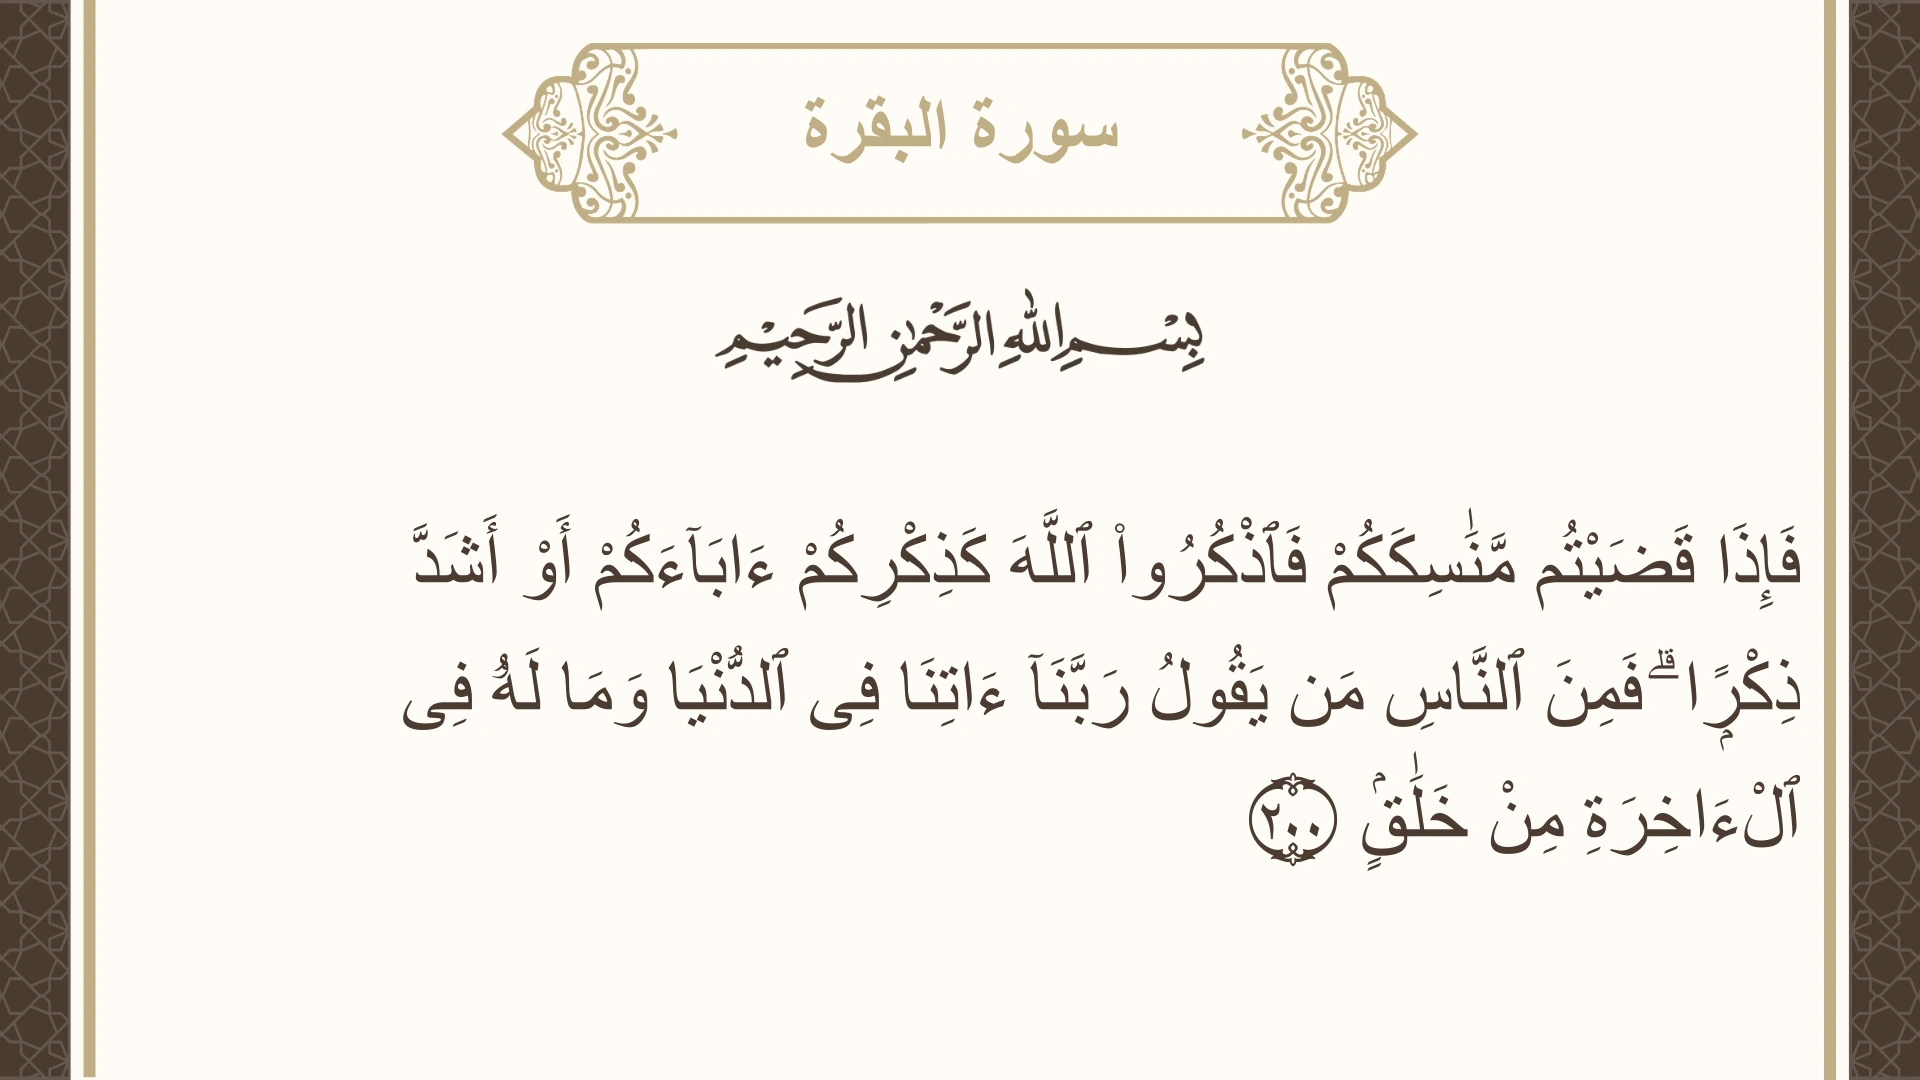 سورة البقرة
بِسْمِ اللهِ الرَّحْمٰنِ الرَّحِيْمِ
فَإِذَا قَضَيْتُم مَّنَٰسِكَكُمْ فَٱذْكُرُوا۟ ٱللَّهَ كَذِكْرِكُمْ ءَابَآءَكُمْ أَوْ أَشَدَّ
ذِكْرًۭا ۗ فَمِنَ ٱلنَّاسِ مَن يَقُولُ رَبَّنَآ ءَاتِنَا فِى ٱلدُّنْيَا وَمَا لَهُۥ فِى
ٱلْءَاخِرَةِ مِنْ خَلَٰقٍۢ ٢٠٠